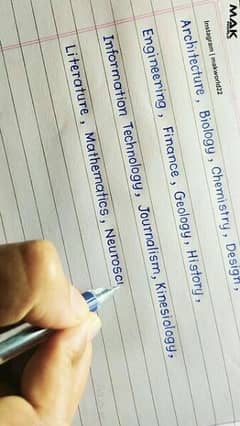 MAK
Instagram | makworld22
Architecture, Biology, Chemistry, Design,
Engineering, Finance, Geology, History,
Information Technology, Journalism, Kinesiology,
Literature, Mathematics, Neurosc